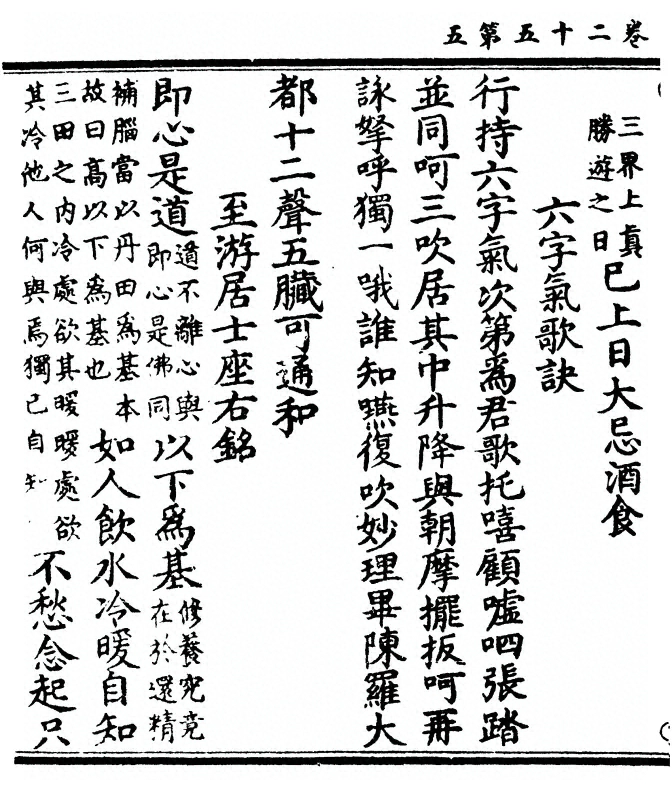 卷二十五第五
三界上真
勝遊之日
巳上日大忌酒食
六字氣歌訣
行持六字氣次第爲君歌托嘻顧噓呬張踏
並同呵三吹居其中升降與朝摩擺扳呵再
詠拏呼獨一哦誰知嚥復吹妙理畢陳羅大
都十二聲五臟可通和
至游居士座右銘
即心是道
道不離心與
即心是佛同
以下爲基
修養究竟
在於還精
補腦當以丹田爲基本
故曰高以下爲基也
如人飲水冷暖自知
三田之内冷處欲其暖暖處欲
其冷他人何與焉獨己自知
不愁念起只